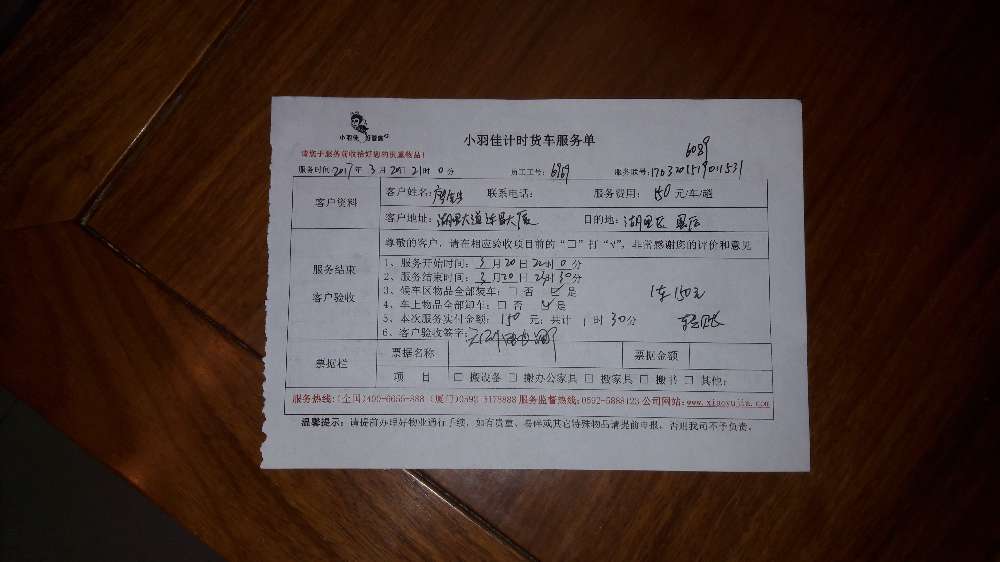 小羽佳 好管家
小羽佳计时货车服务单
6089
请您于服务前收拾好您的贵重物品!
服务时间:2017年 3月 20日 21时 0分 员工工号: 6969 服务账号:
客户资料
客户姓名: 联系电话: 服务费用: 150 元/车/趟
客户地址: 湖里大道 大厦 目的地: 湖里区
尊敬的客户,请在相应验收项目前的“□”打“√”,非常感谢您的评价和意见
服务结束
客户验收
1、服务开始时间: 3月20日 22时 0分
2、服务结束时间: 3月20日 23时30分
3、候车区物品全部装车: □ 否 ☑ 是
1车150元
4、车上物品全部卸车: □ 否 ☑ 是
5、本次服务实付金额: 150 元; 共计 1 时 30分
6、客户验收签字:
票据栏
票据名称 票据金额
项 目 □ 搬设备 □ 搬办公家具 □ 搬家具 □ 搬书 □ 其他:
服务热线:(全国)400-6666-888 (厦门)0592-5178888 服务监督热线:0592-5888123 公司网站:www.xiaoyujia.com
温馨提示:请提前办理好物业通行手续,如有贵重、易碎或其它特殊物品请提前申报,否则我司不予负责。